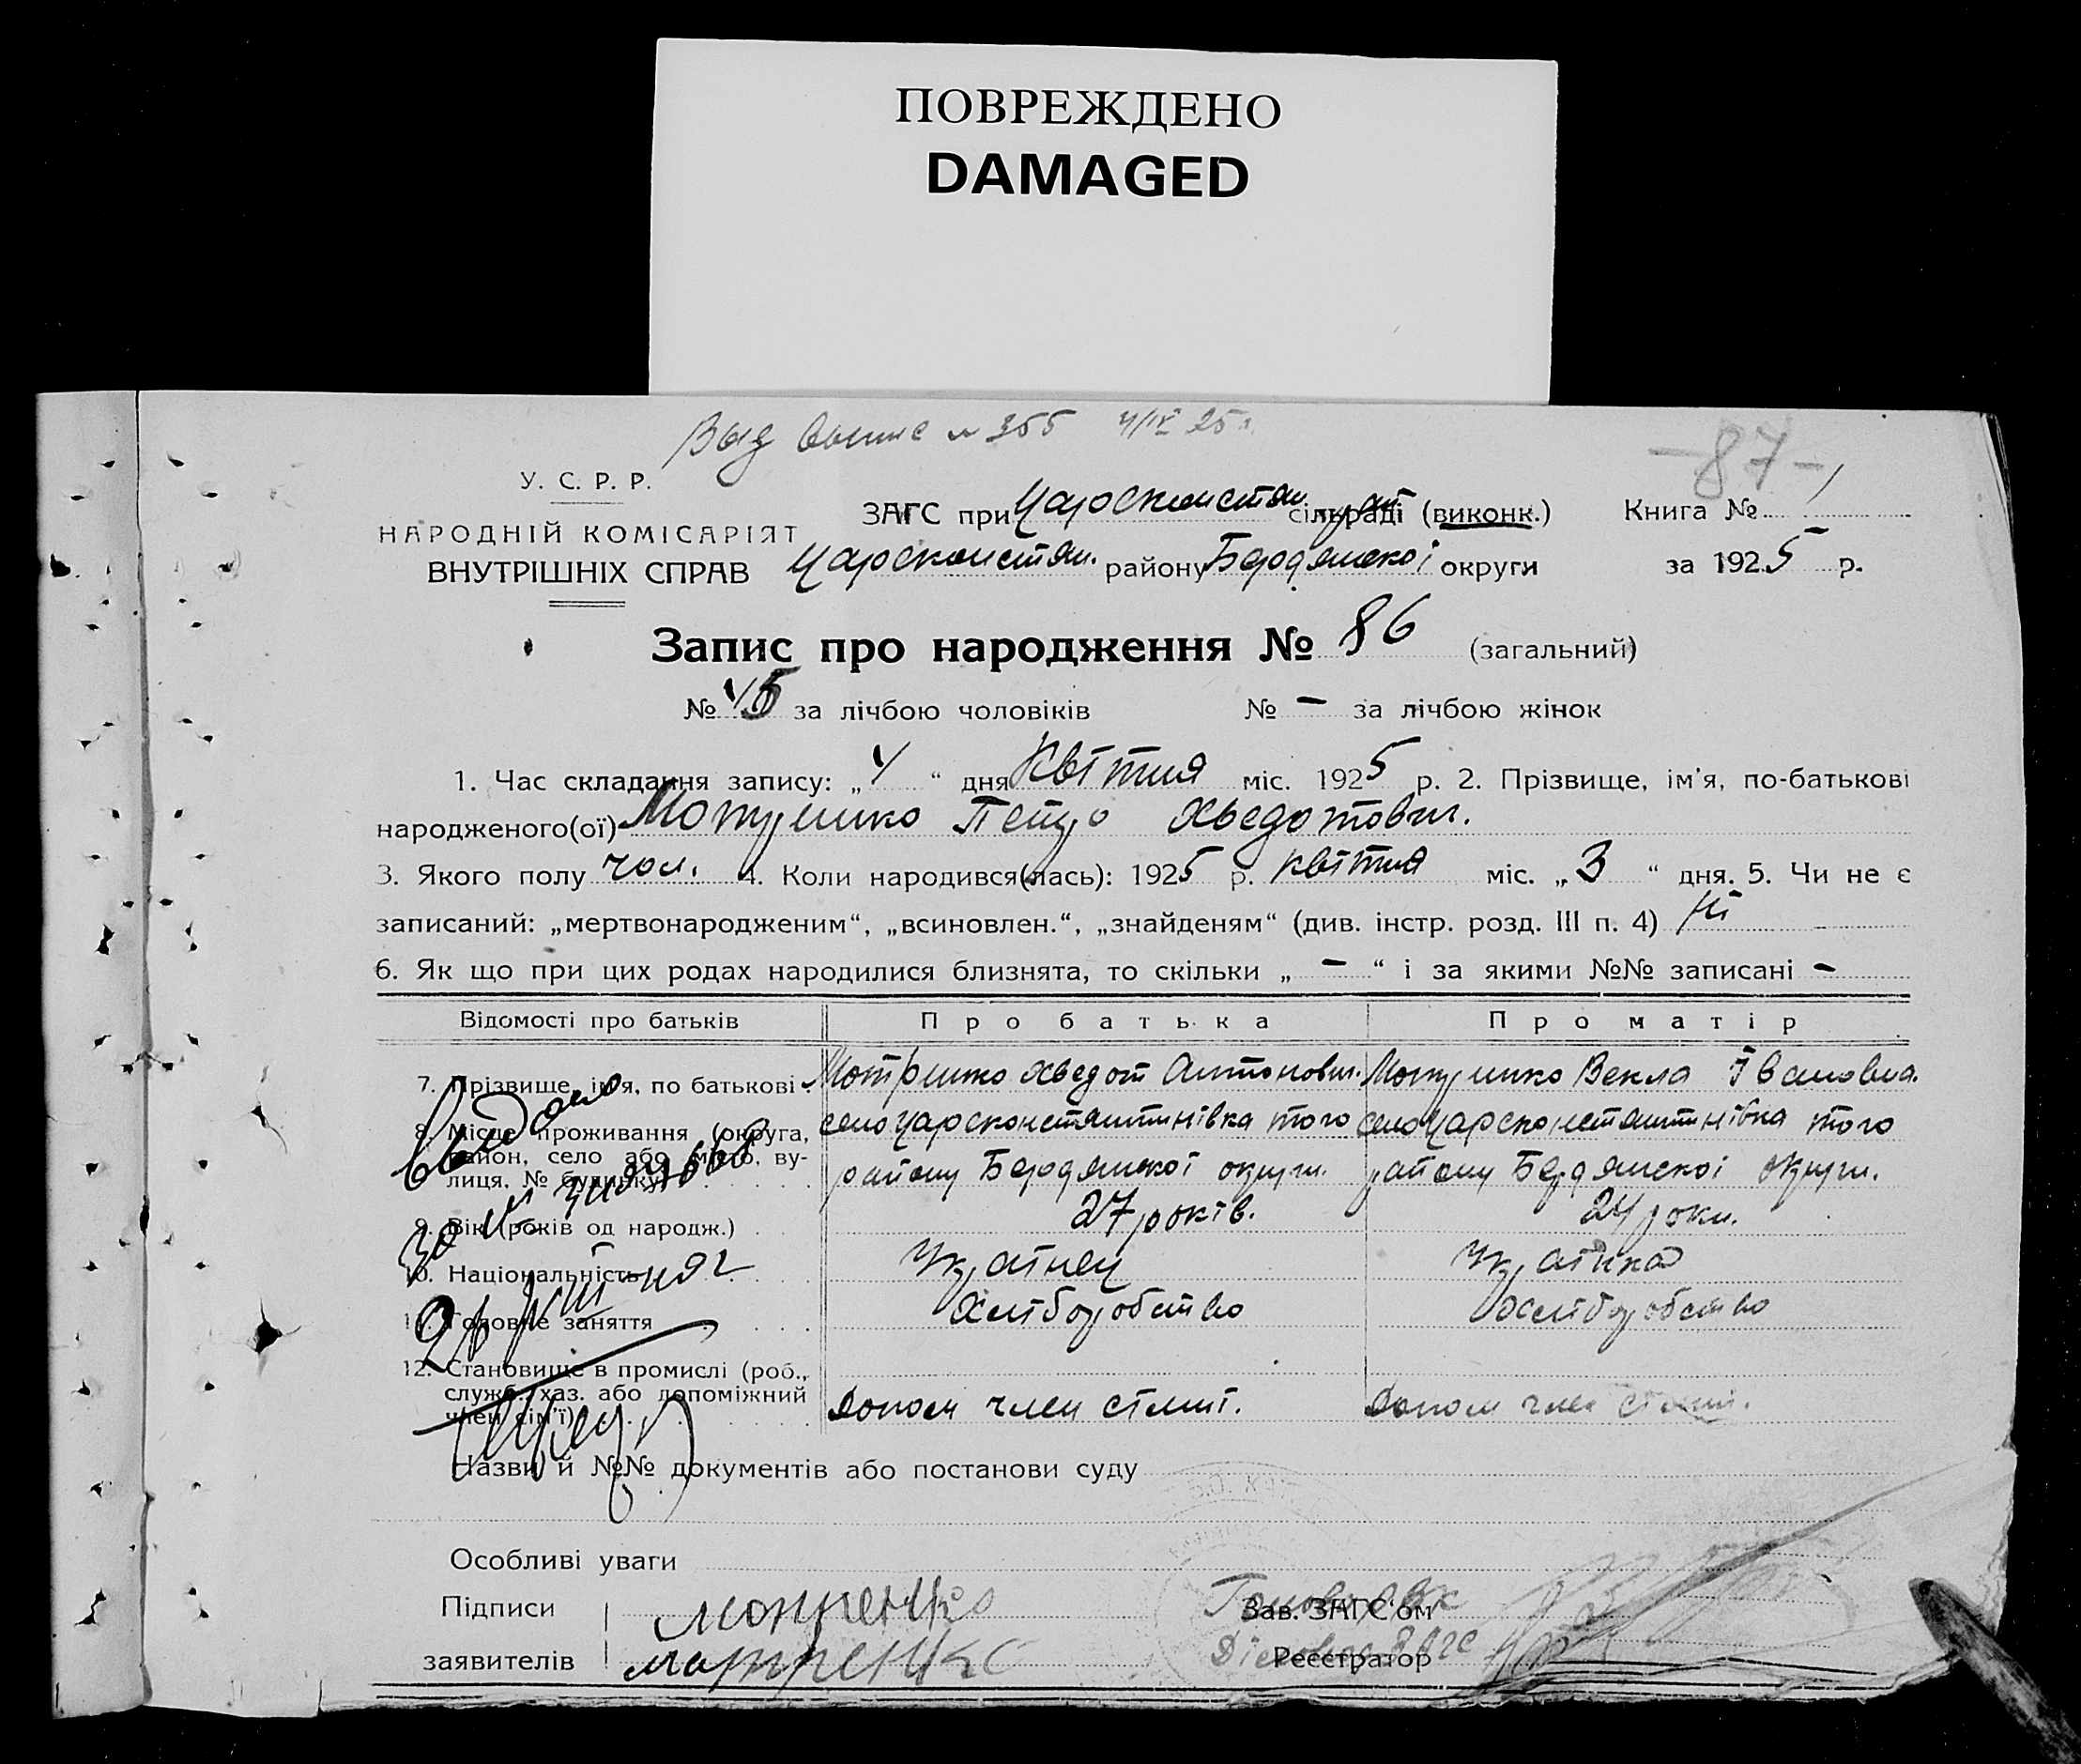 ПОВРЕЖДЕНО
DAMAGED
Выд выпис № 355 4/IV 25 г.
-87-
У. С. Р. Р.
НАРОДНІЙ КОМІСАРІЯТ
ВНУТРІШНІХ СПРАВ
ЗАГС при Царсконстян. сільраді (виконк.) Книга №
Царсконстян. району Бердянської округи за 1925 р.
Запис про народження № 86 (загальний)
№ 45 за лічбою чоловіків № - за лічбою жінок
1. Час складання запису: „4“ дня Квітня міс. 1925 р. 2. Прізвище, ім'я, по-батькові
народженого(ої) Мотренко Петро Хведотович.
3. Якого полу чол. 4. Коли народився(лась): 1925 р. квітня міс. „3“ дня. 5. Чи не є
записаний: „мертвонародженим“, „всиновлен.“, „знайденям“ (див. інстр. розд. III п. 4) Ні
6. Як що при цих родах народилися близнята, то скільки „ - “ і за якими №№ записані -
Відомості про батьків Про батька Про матір
7. Прізвище, ім'я, по батькові Мотренко Хведот Антонович. Мотренко Векла Івановна.
8. Місце проживання (округа, район, село або місто, вулиця, № будинку) село Царсконстянтинівка того село Царсконстянтинівка того
району Бердянської округи. району Бердянської округи.
9. Вік (років од народж.) 27 років. 24 роки.
10. Національність Українец Українка
11. Головне заняття Хліборобство Хліборобство
12. Становище в промислі (роб., служб., хаз. або допоміжний член сім'ї) допом член сімї. допом член сімї.
Видано
Назви й №№ документів або постанови суду
Особливі уваги
Підписи Мотренко Зав. ЗАГС'ом
заявителів Мотренко Реєстратор